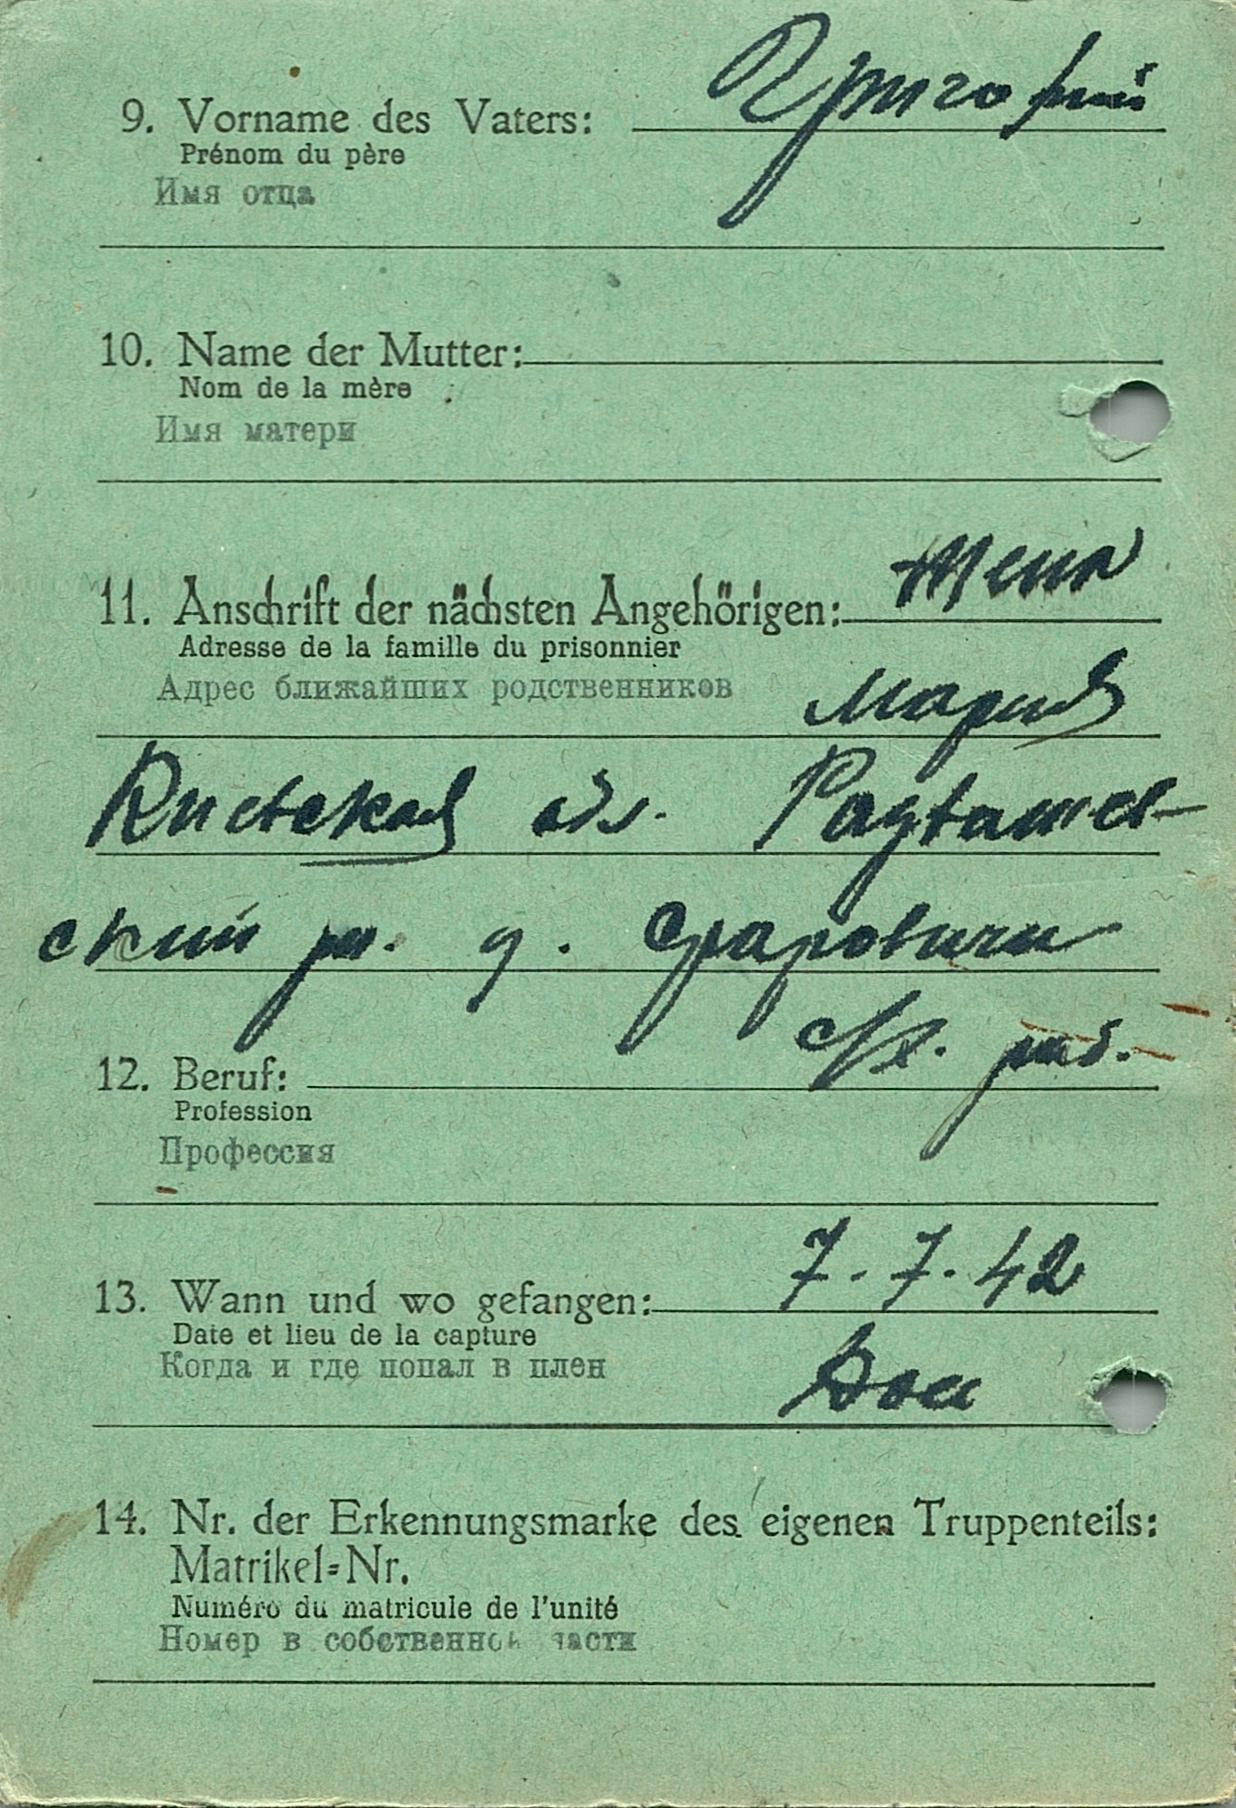 9. Vorname des Vaters: Григорий
Prénom du père
Имя отца
10. Name der Mutter:
Nom de la mère
Имя матери
11. Anschrift der nächsten Angehörigen: жена
Adresse de la famille du prisonnier
Адрес ближайших родственников Мария
обл.
ский рн. д.
12. Beruf: с/х. раб.
Profession
Профессия
13. Wann und wo gefangen: 7.7.42
Date et lieu de la capture
Когда и где попал в плен Дон
14. Nr. der Erkennungsmarke des eigenen Truppenteils:
Matrikel=Nr.
Numéro du matricule de l'unité
Номер в собственной части